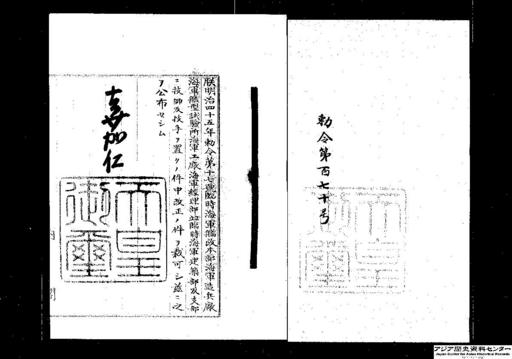 勅令第百七十号
朕明治四十五年勅令第十七號臨時海軍艦政本部海軍造兵廠
海軍艦型試驗所海軍工廠海軍經理部竝臨時海軍建築部及支部
ニ技師及技手ヲ置クノ件中改正ノ件ヲ裁可シ茲ニ之
ヲ公布セシム
嘉仁
天皇
御璽
アジア歴史資料センター
Japan Center for Asian Historical Records